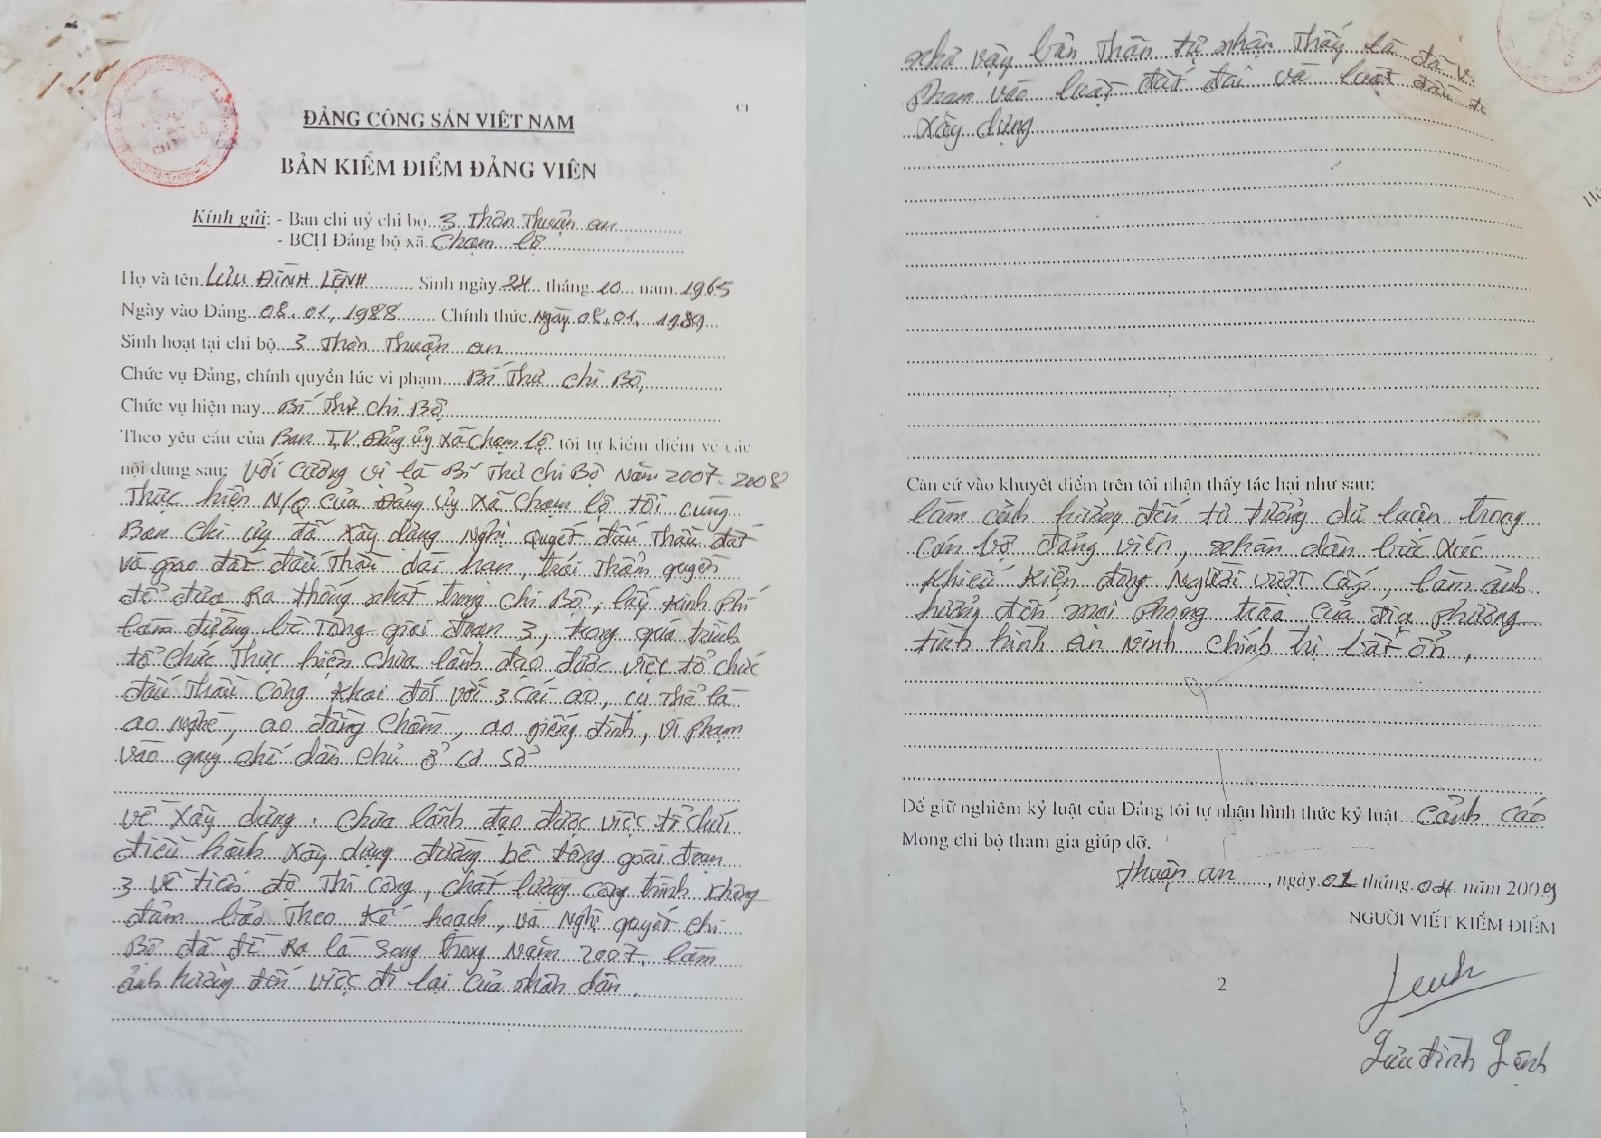 C1
ĐẢNG CỘNG SẢN VIỆT NAM
BẢN KIỂM ĐIỂM ĐẢNG VIÊN
Kính gửi: - Ban chi uỷ chi bộ 3 Thôn Thuận an
- BCH Đảng bộ xã Chạm lộ
Họ và tên LƯU ĐÌNH LỆNH Sinh ngày 24 tháng 10 năm 1965
Ngày vào Đảng 08.01.1988 Chính thức ngày 08.01.1989
Sinh hoạt tại chi bộ 3 Thôn Thuận an
Chức vụ Đảng, chính quyền lúc vi phạm Bí Thư chi Bộ
Chức vụ hiện nay Bí Thư chi Bộ
Theo yêu cầu của Ban T.V Đảng ủy xã Chạm lộ tôi tự kiểm điểm về các
nội dung sau: Với cương vị là Bí Thư chi Bộ Năm 2007-2008
Thực hiện N/Q của Đảng ủy xã Chạm lộ tôi cùng
Ban chi ủy đã xây dựng Nghị quyết đấu Thầu đất
và giao đất đấu Thầu dài hạn, trái Thẩm quyền
để đưa ra thống nhất trong chi Bộ, lấy kinh phí
làm đường bê Tông giai đoạn 3, trong quá trình
tổ chức thực hiện chưa lãnh đạo được việc tổ chức
đấu Thầu công khai đối với 3 cái ao, cụ thể là
ao Nghè, ao đầng chầm, ao giếng đình, vi phạm
vào quy chế dân chủ ở cơ sở
về xây dựng. chưa lãnh đạo được việc tổ chức
điều hành xây dựng đường bê tông giai đoạn
3 về tiến độ thi công, chất lượng công trình không
đảm bảo theo kế hoạch, và Nghị quyết chi
Bộ đã đề ra là song trong năm 2007. làm
ảnh hưởng đến việc đi lại của nhân dân.
như vậy bản thân tự nhận thấy là đã vi
phạm vào luật đất đai và luật đầu
xây dựng
Căn cứ vào khuyết điểm trên tôi nhận thấy tác hại như sau:
làm ảnh hưởng đến tư tưởng dư luận trong
cán bộ đảng viên, nhân dân bức xúc
khiếu kiện đông người vượt cấp, làm ảnh
hưởng đến mọi phong trào của địa phương
tình hình an ninh chính trị bất ổn,
Để giữ nghiêm kỷ luật của Đảng tôi tự nhận hình thức kỷ luật Cảnh cáo
Mong chi bộ tham gia giúp đỡ.
Thuận an, ngày 01 tháng 04 năm 2009
NGƯỜI VIẾT KIỂM ĐIỂM
2
Lưu đình Lệnh